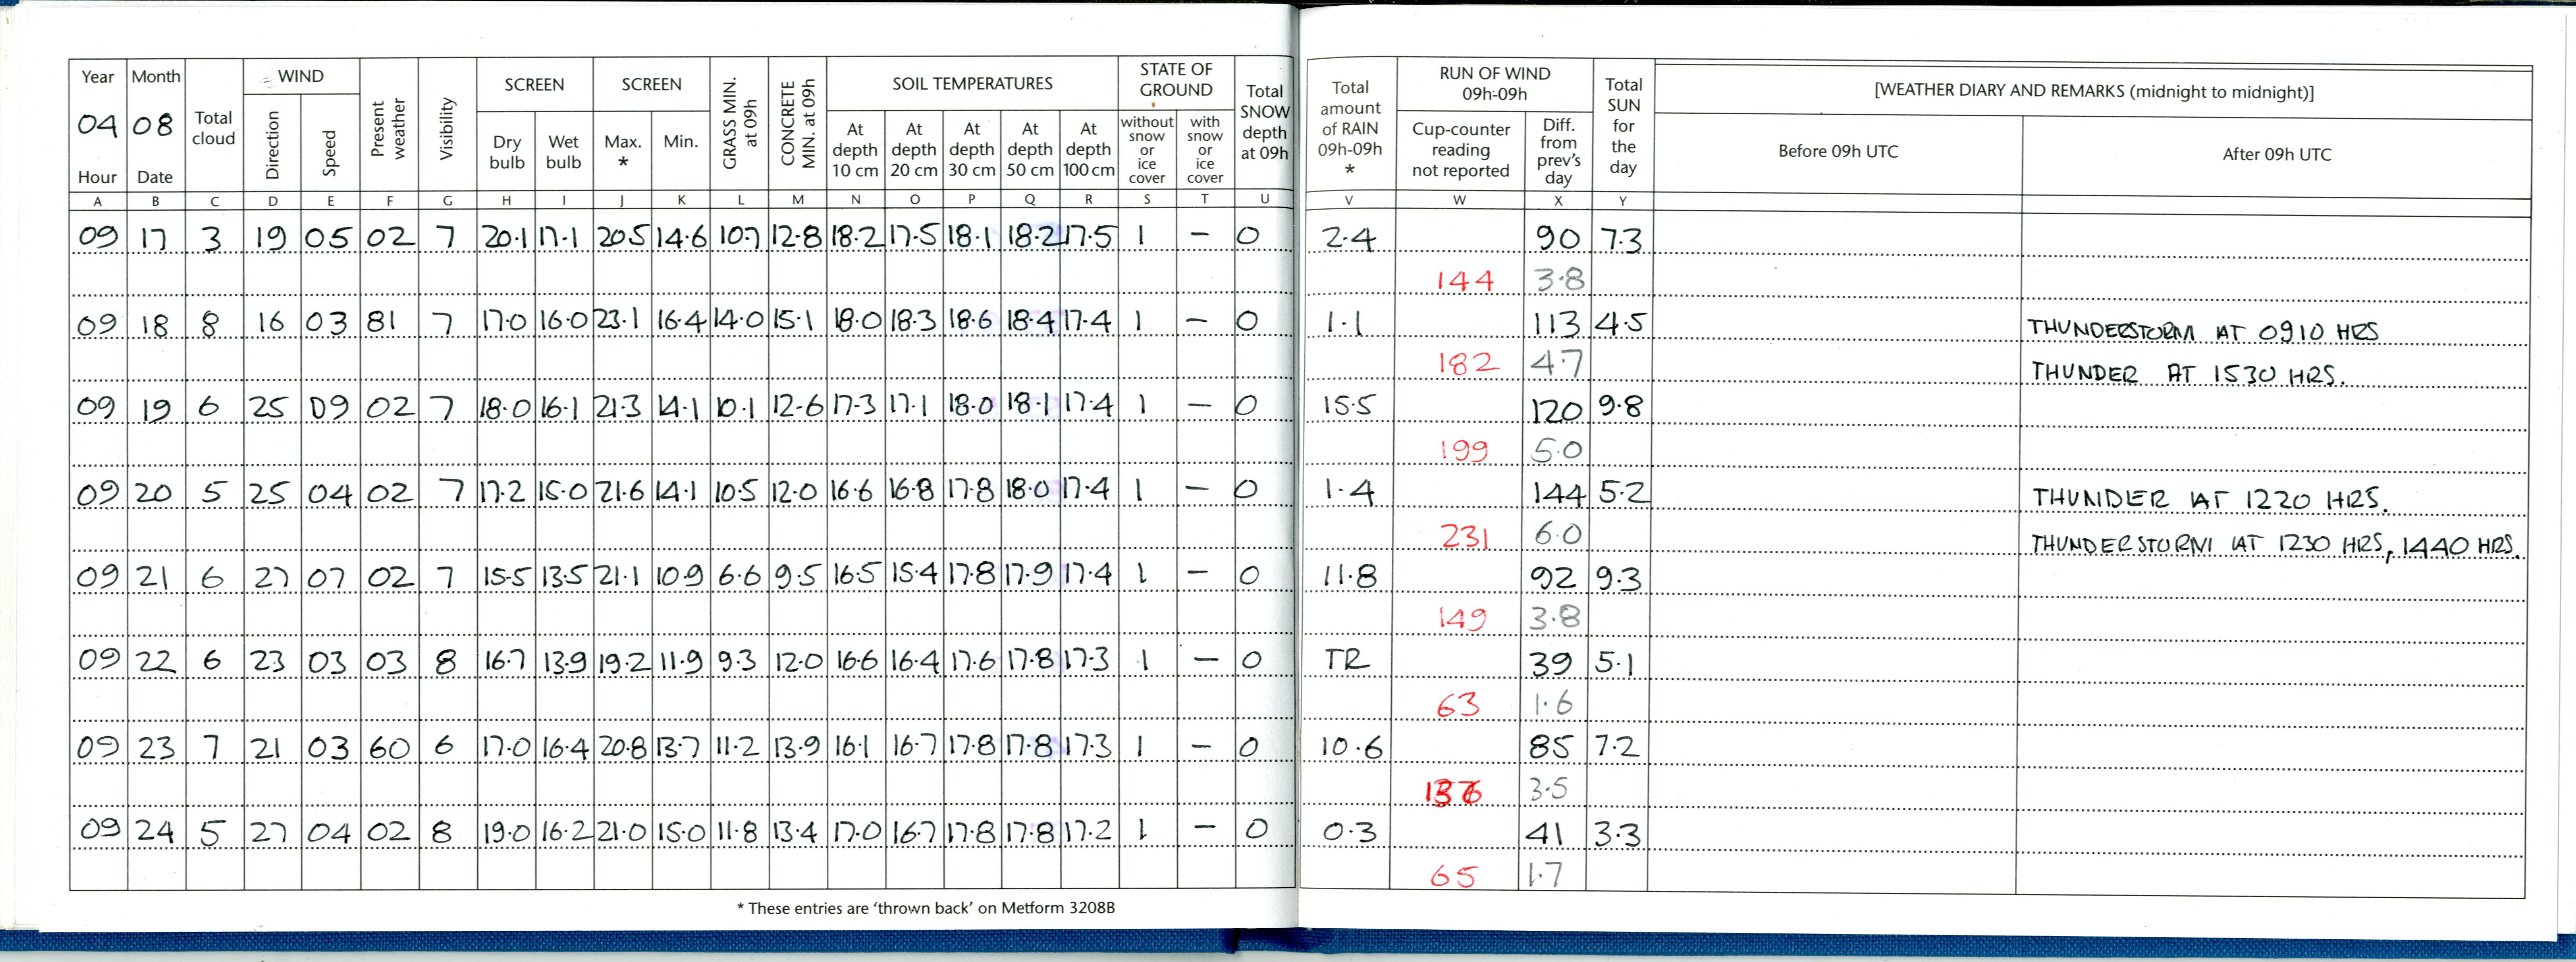 Year Month WIND SCREEN SCREEN SOIL TEMPERATURES STATE OF GROUND RUN OF WIND 09h-09h [WEATHER DIARY AND REMARKS (midnight to midnight)]
04 08 Total cloud Direction Speed Present weather Visibility Dry bulb Wet bulb Max. * Min. GRASS MIN. at 09h CONCRETE MIN. at 09h At depth 10 cm At depth 20 cm At depth 30 cm At depth 50 cm At depth 100 cm without snow or ice cover with snow or ice cover Total SNOW depth at 09h Total amount of RAIN 09h-09h * Cup-counter reading not reported Diff. from prev's day Total SUN for the day Before 09h UTC After 09h UTC
Hour Date
A B C D E F G H I J K L M N O P Q R S T U V W X Y
09 17 3 19 05 02 7 20.1 17.1 20.5 14.6 10.7 12.8 18.2 17.5 18.1 18.2 17.5 1 – 0 2.4 90 7.3
144 3.8
09 18 8 16 03 81 7 17.0 16.0 23.1 16.4 14.0 15.1 18.0 18.3 18.6 18.4 17.4 1 – 0 1.1 113 4.5 THUNDERSTORM AT 0910 HRS
182 4.7 THUNDER AT 1530 HRS.
09 19 6 25 09 02 7 18.0 16.1 21.3 14.1 10.1 12.6 17.3 17.1 18.0 18.1 17.4 1 – 0 15.5 120 9.8
199 5.0
09 20 5 25 04 02 7 17.2 15.0 21.6 14.1 10.5 12.0 16.6 16.8 17.8 18.0 17.4 1 – 0 1.4 144 5.2 THUNDER AT 1220 HRS.
231 6.0 THUNDERSTORM AT 1230 HRS, 1440 HRS.
09 21 6 27 07 02 7 15.5 13.5 21.1 10.9 6.6 9.5 16.5 15.4 17.8 17.9 17.4 1 – 0 11.8 92 9.3
149 3.8
09 22 6 23 03 03 8 16.7 13.9 19.2 11.9 9.3 12.0 16.6 16.4 17.6 17.8 17.3 1 – 0 TR 39 5.1
63 1.6
09 23 7 21 03 60 6 17.0 16.4 20.8 13.7 11.2 13.9 16.1 16.7 17.8 17.8 17.3 1 – 0 10.6 85 7.2
3.5
09 24 5 27 04 02 8 19.0 16.2 21.0 15.0 11.8 13.4 17.0 16.7 17.8 17.8 17.2 1 – 0 0.3 41 3.3
65 1.7
* These entries are 'thrown back' on Metform 3208B